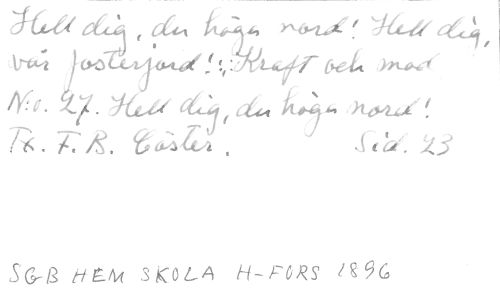 Hell dig, du höga nord! Hell dig,
vår fosterjord! ;: Kraft och mod
N:o. 27. Hell dig, du höga nord!
Tx. F. B. Cöster. Sid. 23
SGB HEM SKOLA H-FORS 1896